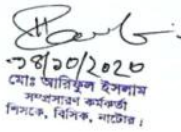 ১৪/১০/২০২০
মোঃ আরিফুল ইসলাম
সম্প্রসারণ কর্মকর্তা
শিসকে, বিসিক, নাটোর।